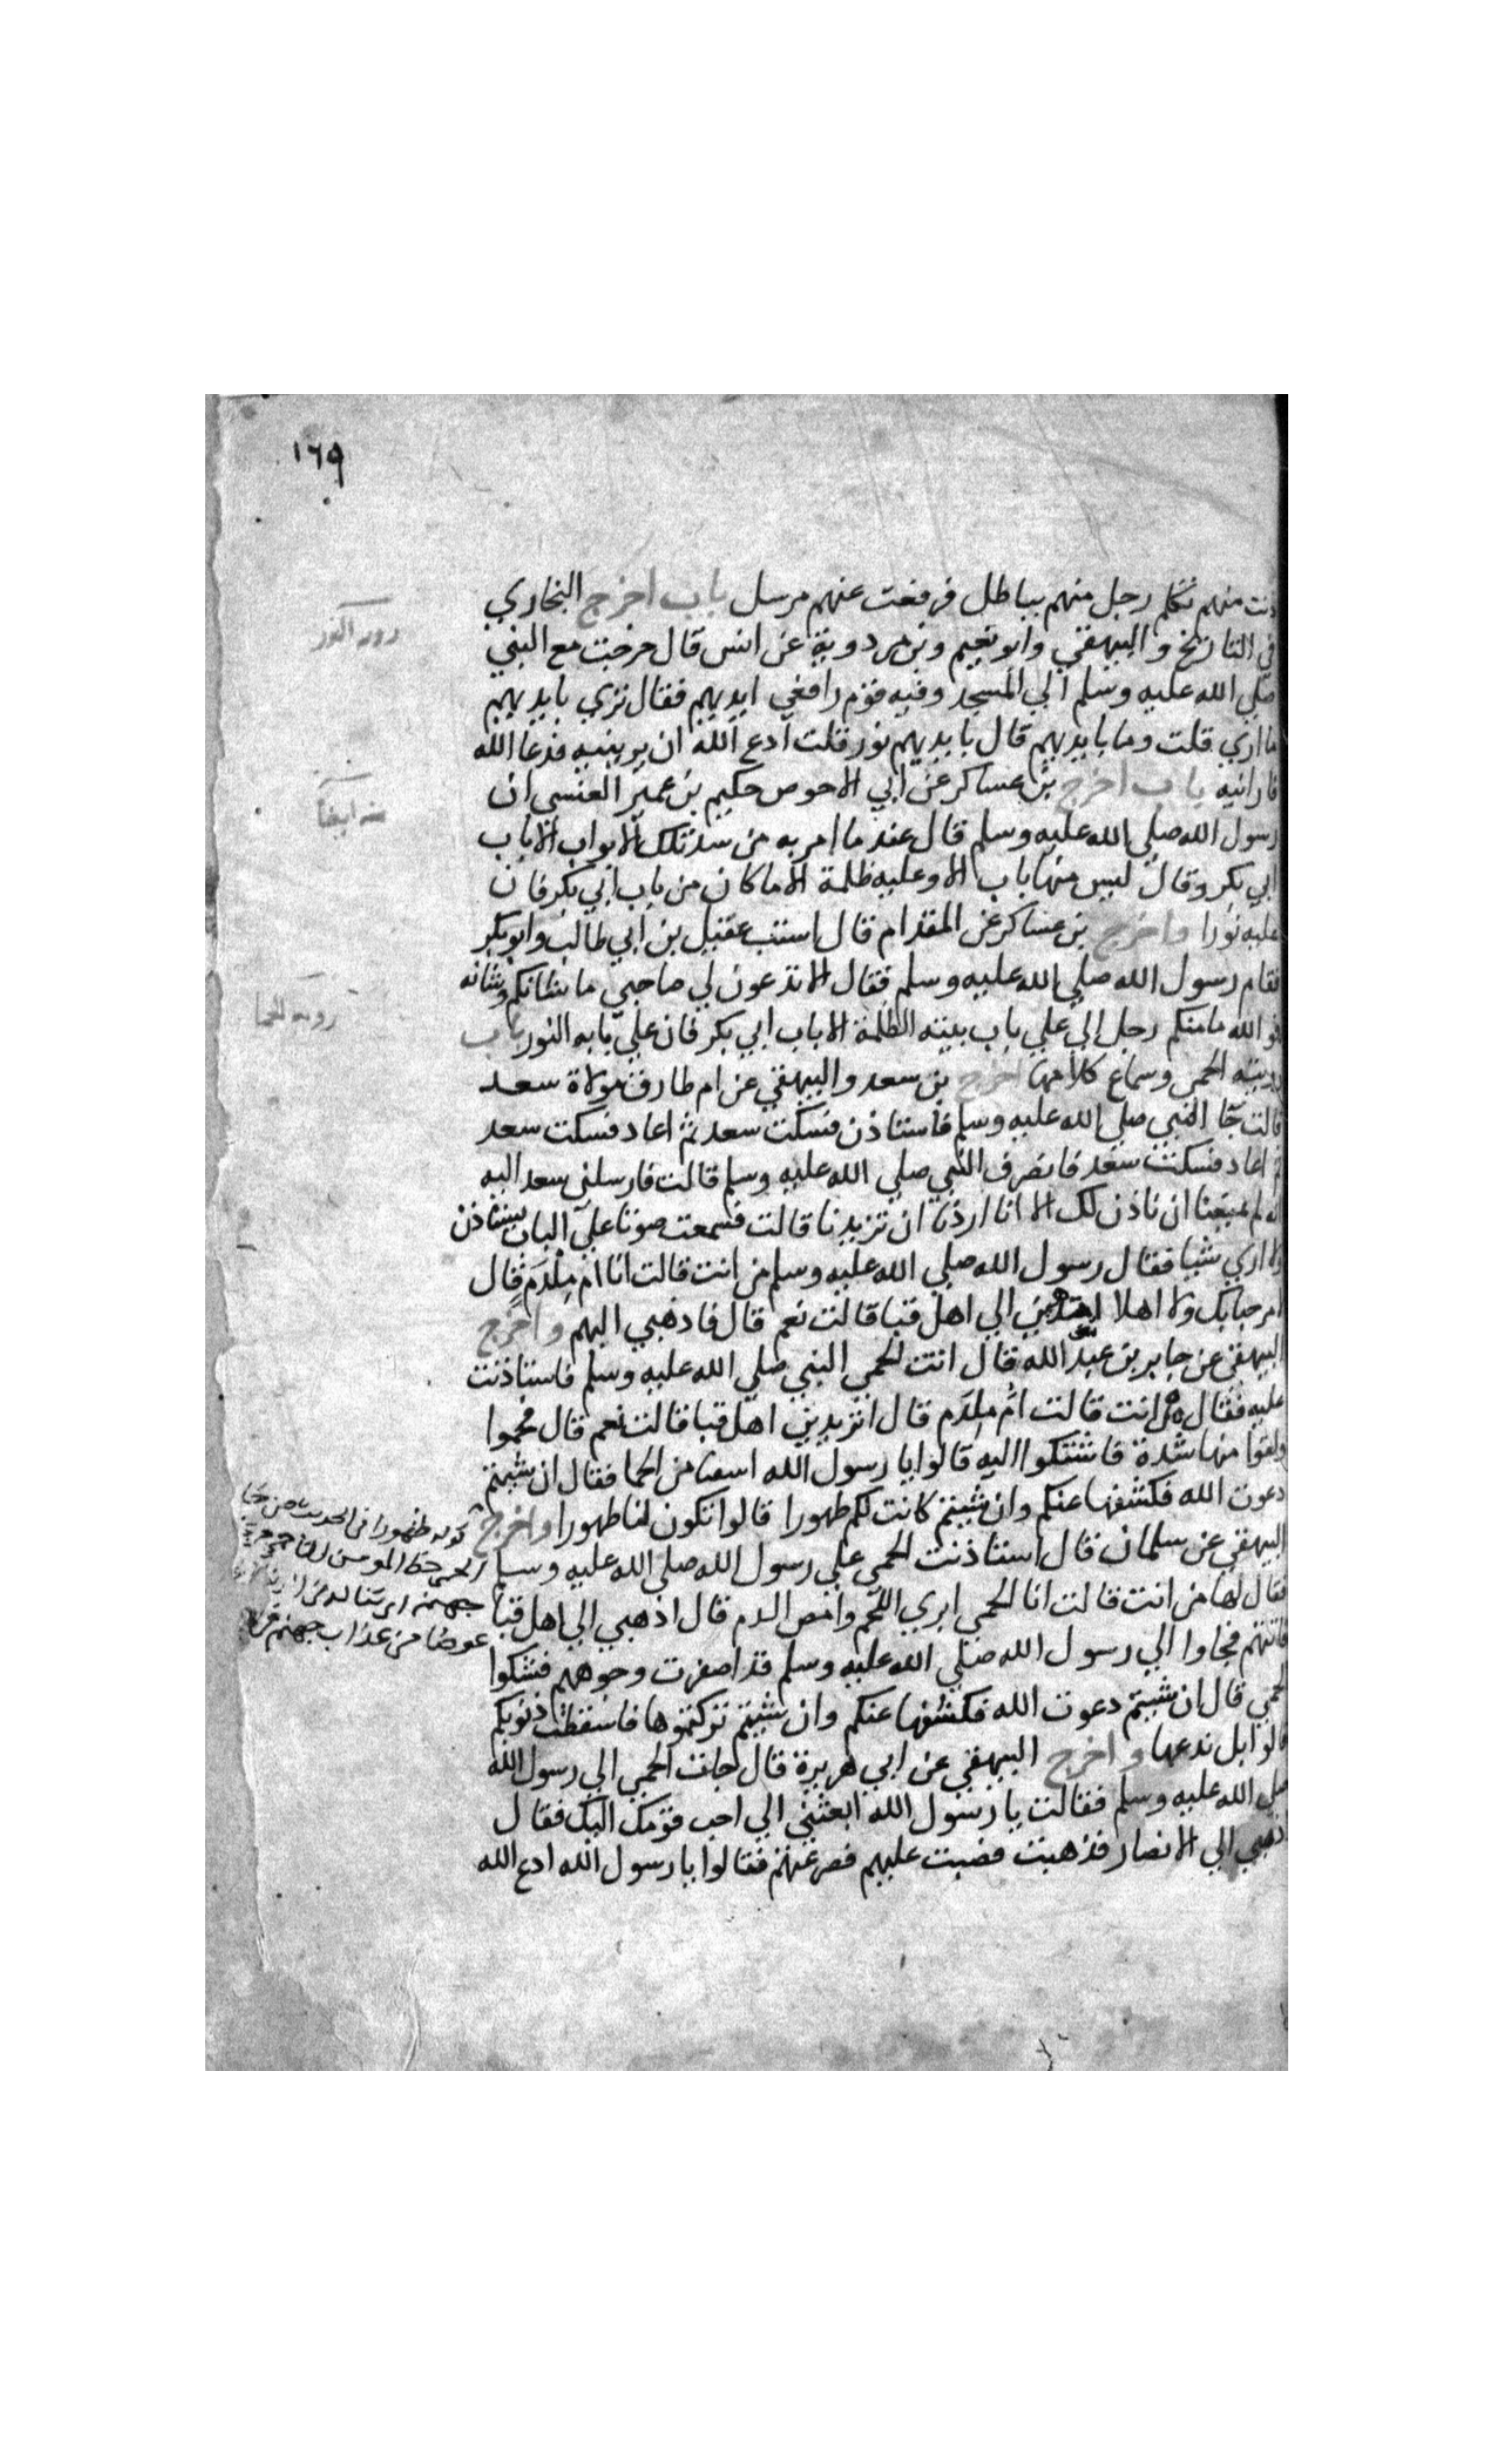 ١٦٩
دنت منهم تكلم رجل منهم بباطل فرفعت عنهم مرسل باب اخرج البخاري
في التاريخ والبيهقي وابو نعيم وبن مردوية عن انس قال خرجت مع النبي
صلي الله عليه وسلم الي المسجد وفيه قوم رافعي ايديهم فقال تري بايديهم
ما اري قلت وما بايديهم قال بايديهم نور قلت ادع الله ان يرينيه فدعا الله
فارانيه باب اخرج بن عساكر عن ابي الاحوص حكيم بن عمير العنسي ان
رسول الله صلي الله عليه وسلم قال عند ما امر به من سد تلك الابواب الا باب
ابي بكر وقال ليس منها باب الا وعليه ظلمة الا ما كان من باب ابي بكر فان
عليه نورا واخرج بن عساكر عن المقدام قال استب عقيل بن ابي طالب وابو بكر
فقام رسول الله صلي الله عليه وسلم فقال الا تدعون لي صاحبي ما شانكم وشانه
فو الله ما منكم رجل الي علي باب بيته الظلمة الا باب ابي بكر فان علي بابه النور باب
رويته الحمي وسماع كلامها اخرج بن سعد والبيهقي عن ام طارق مولاة سعد
قالت جا النبي صلي الله عليه وسلم فاستاذن فسكت سعد ثم اعاد فسكت سعد
ثم اعاد فسكت سعد فانصرف النبي صلي الله عليه وسلم قالت فارسلني سعد اليه
انه لم يمنعنا ان ناذن لك الا انا اردنا ان تزيدنا قالت فسمعت صوتا علي الباب يستاذن
ولا اري شيا فقال رسول الله صلي الله عليه وسلم من انت قالت انا ام ملدم قال
لا مرحبا بك ولا اهلا اتهدين الي اهل قبا قالت نعم قال فاذهبي اليهم واخرج
البيهقي عن جابر بن عبد الله قال اتت الحمي النبي صلي الله عليه وسلم فاستاذنت
عليه فقال من انت قالت ام ملدم قال اتريدين اهل قبا قالت نعم قال فحموا
ولقوا منها شدة فاشتكوا اليه قالوا يا رسول الله اسعنا من الحما فقال ان شيتم
دعوت الله فكشفها عنكم وان شيتم كانت لكم طهورا قالوا تكون لنا طهورا واخرج
البيهقي عن سلمان قال استاذنت الحمي علي رسول الله صلي الله عليه وسلم
فقال لها من انت قالت انا الحمي ابري اللحم وامص الدم قال اذهبي الي اهل قبا
فاتتهم فجاوا الي رسول الله صلي الله عليه وسلم قد اصفرت وجوههم فشكوا
الحمي قال ان شيتم دعوت الله فكشفها عنكم وان شيتم تركتموها فاسقطت ذنوبكم
قالوا بل ندعها واخرج البيهقي عن ابي هريرة قال جات الحمي الي رسول الله
صلي الله عليه وسلم فقالت يا رسول الله ابعثني الي احب قومك اليك فقال
اذهبي الي الانصار فذهبت فصبت عليهم فصرعتهم فقالوا يا رسول الله ادع الله
منه ايضا
قوله طهورا في الحديث
الحمي حظ المومن
جهنم
عوضا من عذاب جهنم